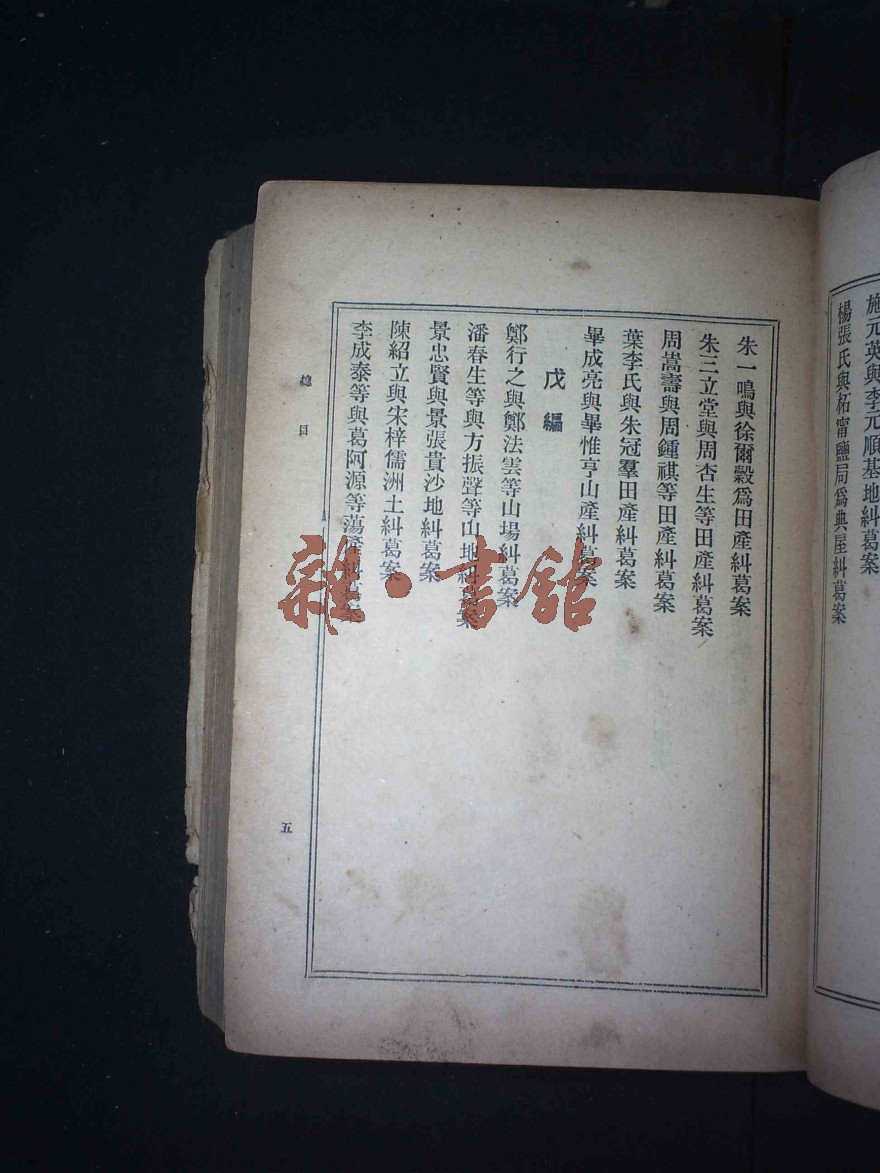 施元英與李元順基地糾葛案
楊張氏與柘甯鹽局爲典屋糾葛案
朱一鳴與徐爾穀爲田產糾葛案
朱三立堂與周杏生等田產糾葛案
周嵩壽與周鍾祺等田產糾葛案
葉李氏與朱冠羣田產糾葛案
畢成亮與畢惟亨山產糾葛案
戊編
鄭行之與鄭法雲等山場糾葛案
潘春生等與方振聲等山地糾葛案
景忠賢與景張貴沙地糾葛案
陳紹立與宋梓儒洲土糾葛案
李成泰等與葛阿源等蕩產糾葛案
總目
五
雜·書館